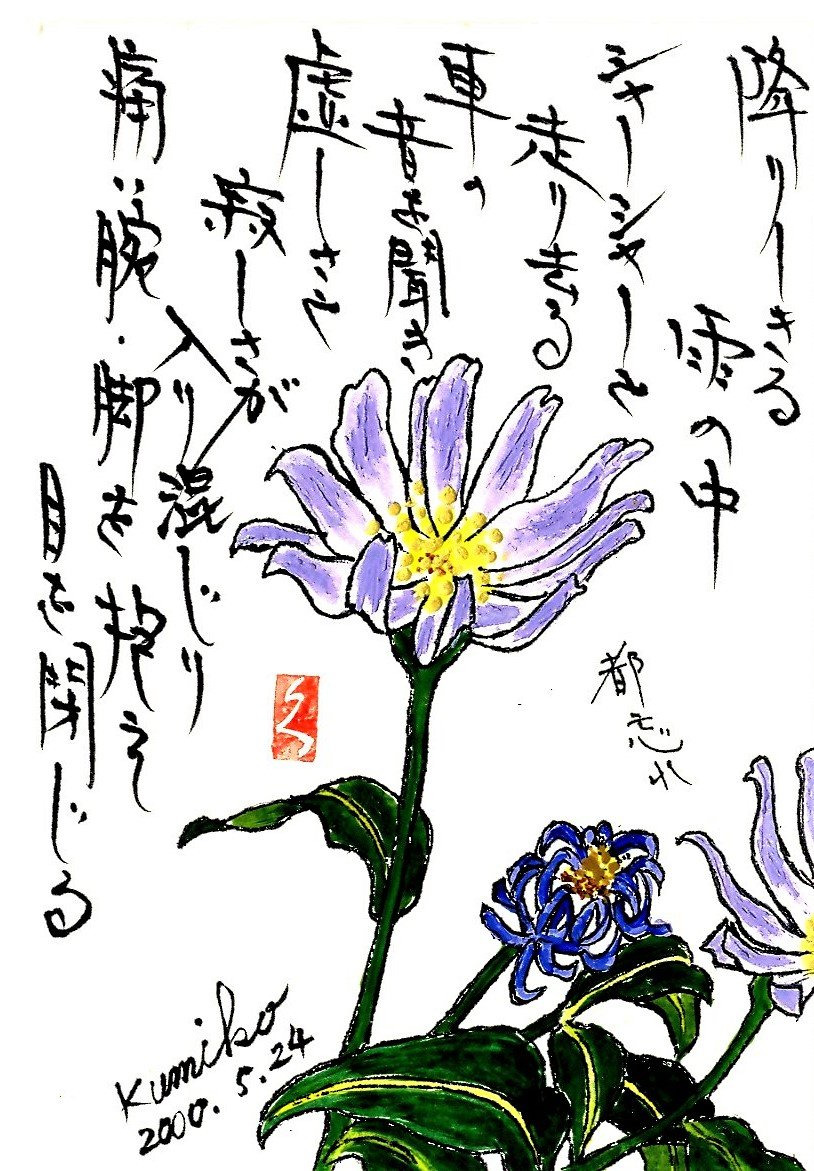 降りしきる
雨の中
シャーシャーと
走り去る
車の
音を聞き
虚しさと
寂しさが
入り混じり
痛い腕・脚を抱え
目を閉じる
都忘れ
Kumiko
2000.5.24